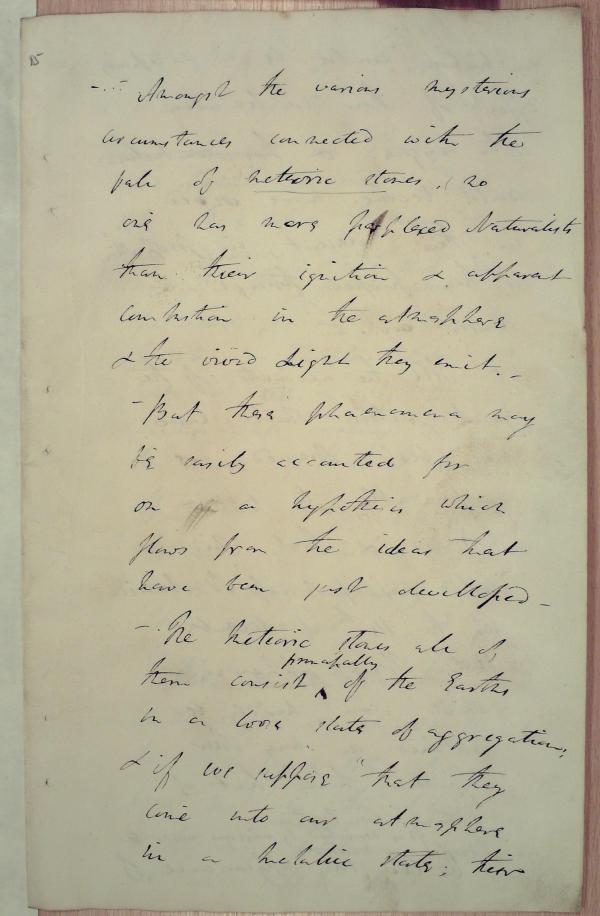 15
- Amongst the various mysterious
circumstances connected with the
fall of meteoric stones, no
one has more perplexed Naturalists
than their ignition & apparent
combustion in the atmosphere
& the vivid Light they emit. -
- But these phaenomena may
be easily accounted for
on a hypothesis which
flows from the ideas that
have been just developed -
- The meteoric stones all of
principally
them consist of the Earths
in a loose state of aggregation,
& if we suppose that they
come into our atmosphere
in a metallic state; their